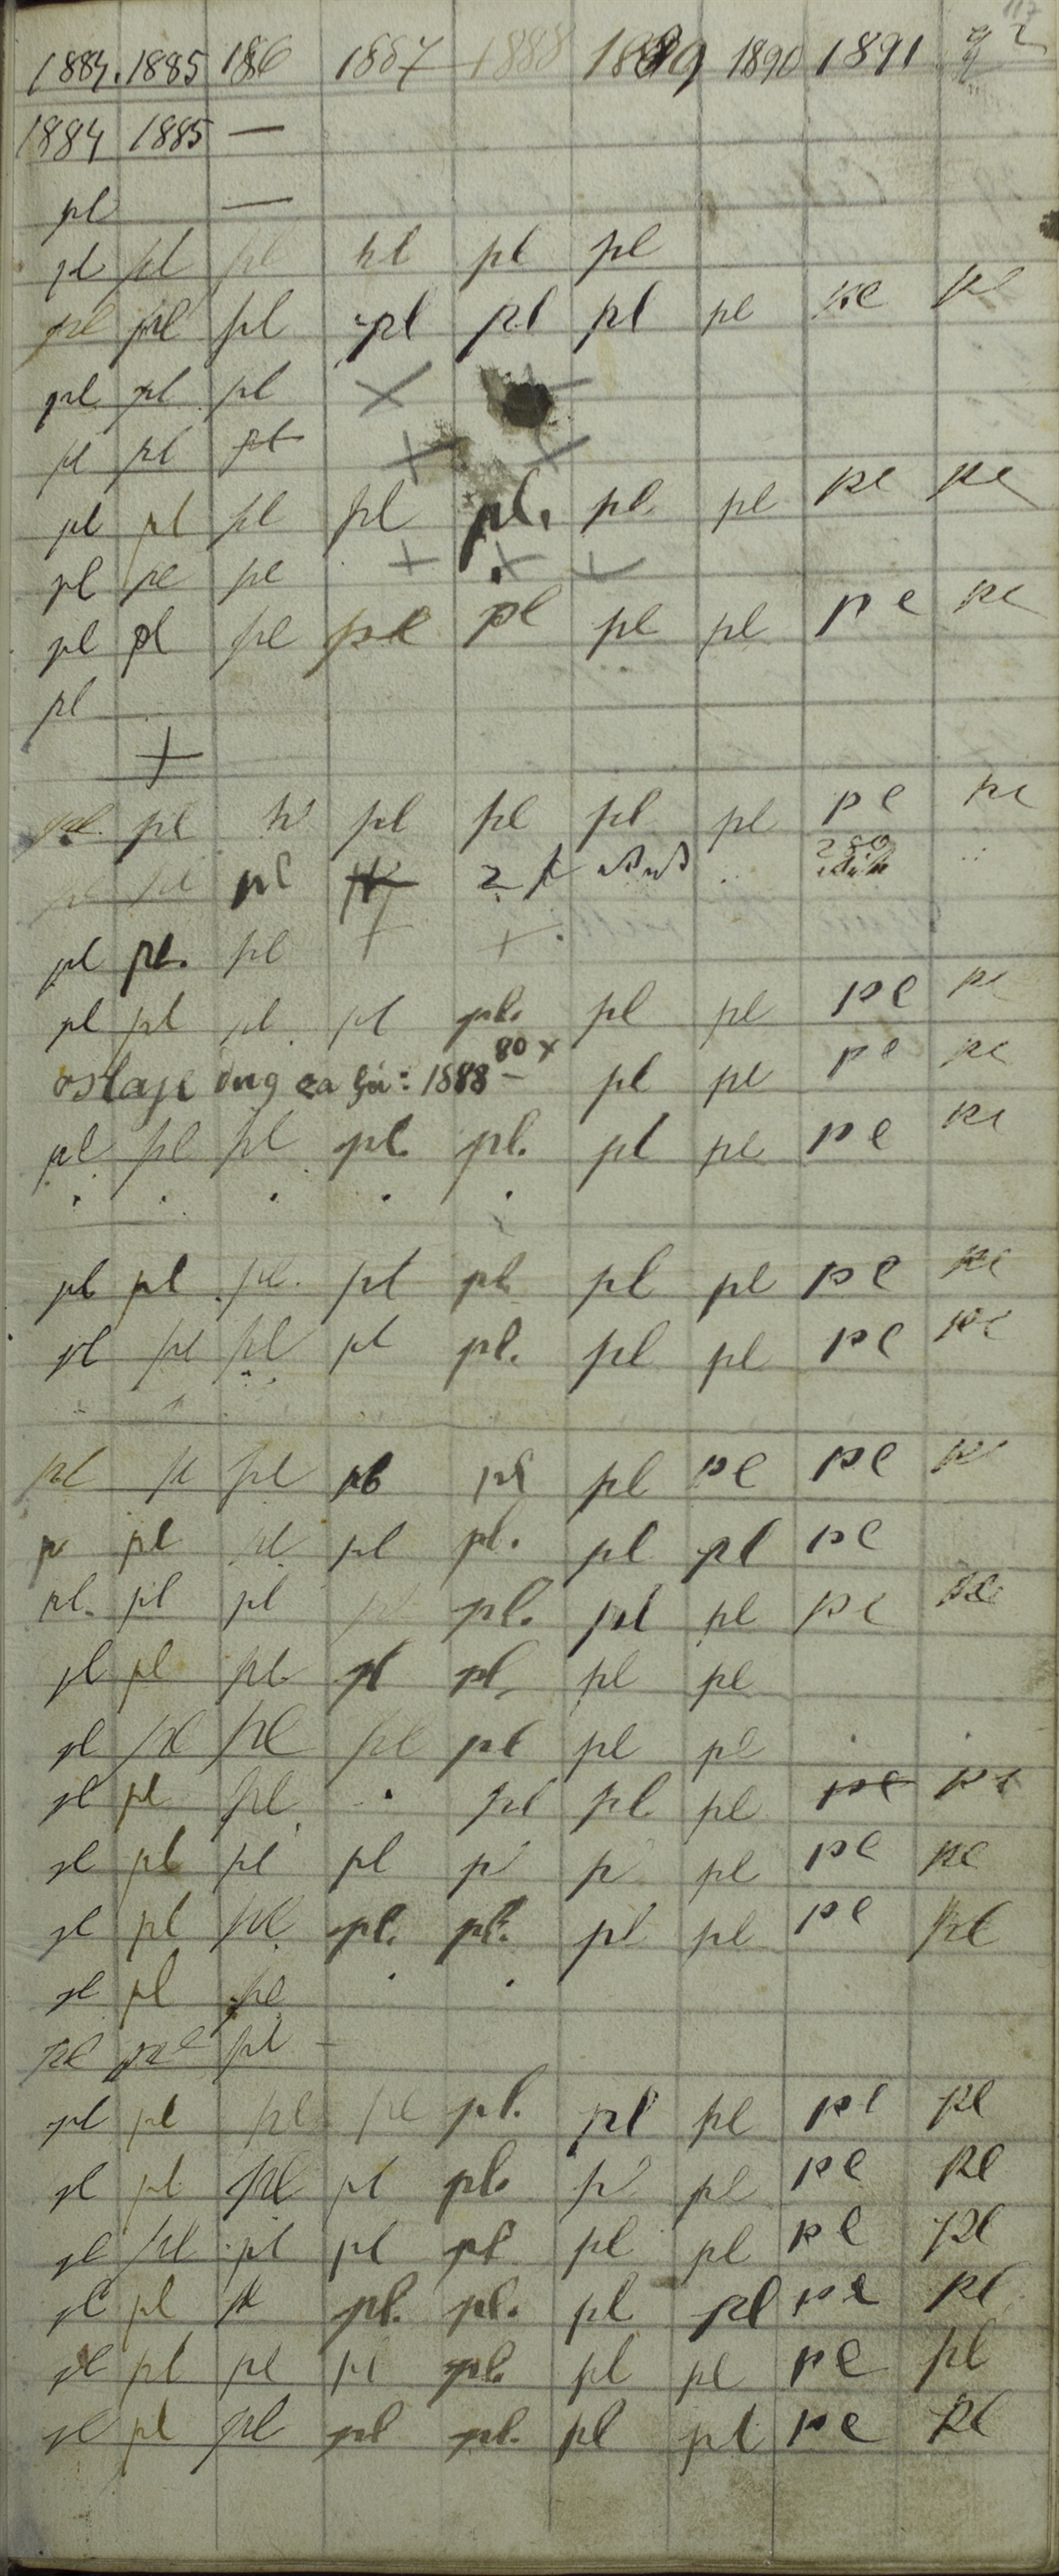 1884. 1885 186 1887 1888 1889 1890 1891 92
1884 1885 —
pl —
pl pl pl pl pl pl
pl pl pl pl pl pl pl pl pl
pl pl pl ×
pl pl pl + +
pl pl pl pl pl. pl pl pl pl
pl pl pl + + +
pl pl pl pl pl pl pl pl pl
pl
+
pl pl pl pl pl pl pl pl
pl pl pl 2
pl pl. pl + +
pl pl pl pl pl. pl pl pl pl
ostaje dug za : 1888 80 x – pl pl pl pl
pl pl pl pl. pl. pl pl pl pl
. . . . .
pl pl pl. pl pl. pl pl pl pl
pl pl pl pl pl. pl pl pl pl
pl pl pl pl pl pl pl pl pl
p pl pl pl pl. pl pl pl
pl. pl pl pl pl. pl pl pl pl
pl pl pl pl pl pl pl
pl pl pl pl pl pl pl . .
pl pl pl . pl pl pl pl pl
pl pl pl pl pl pl pl pl pl
pl pl pl pl. pl. pl pl pl pl
pl pl pl . .
pl pl pl –
pl pl pl pl pl. pl pl pl pl
pl pl pl pl pl. pl pl pl pl
pl pl pl pl pl pl pl pl pl
pl pl pl pl. pl. pl pl pl pl
pl pl pl pl pl. pl pl pl pl
pl pl pl pl pl. pl pl pl pl